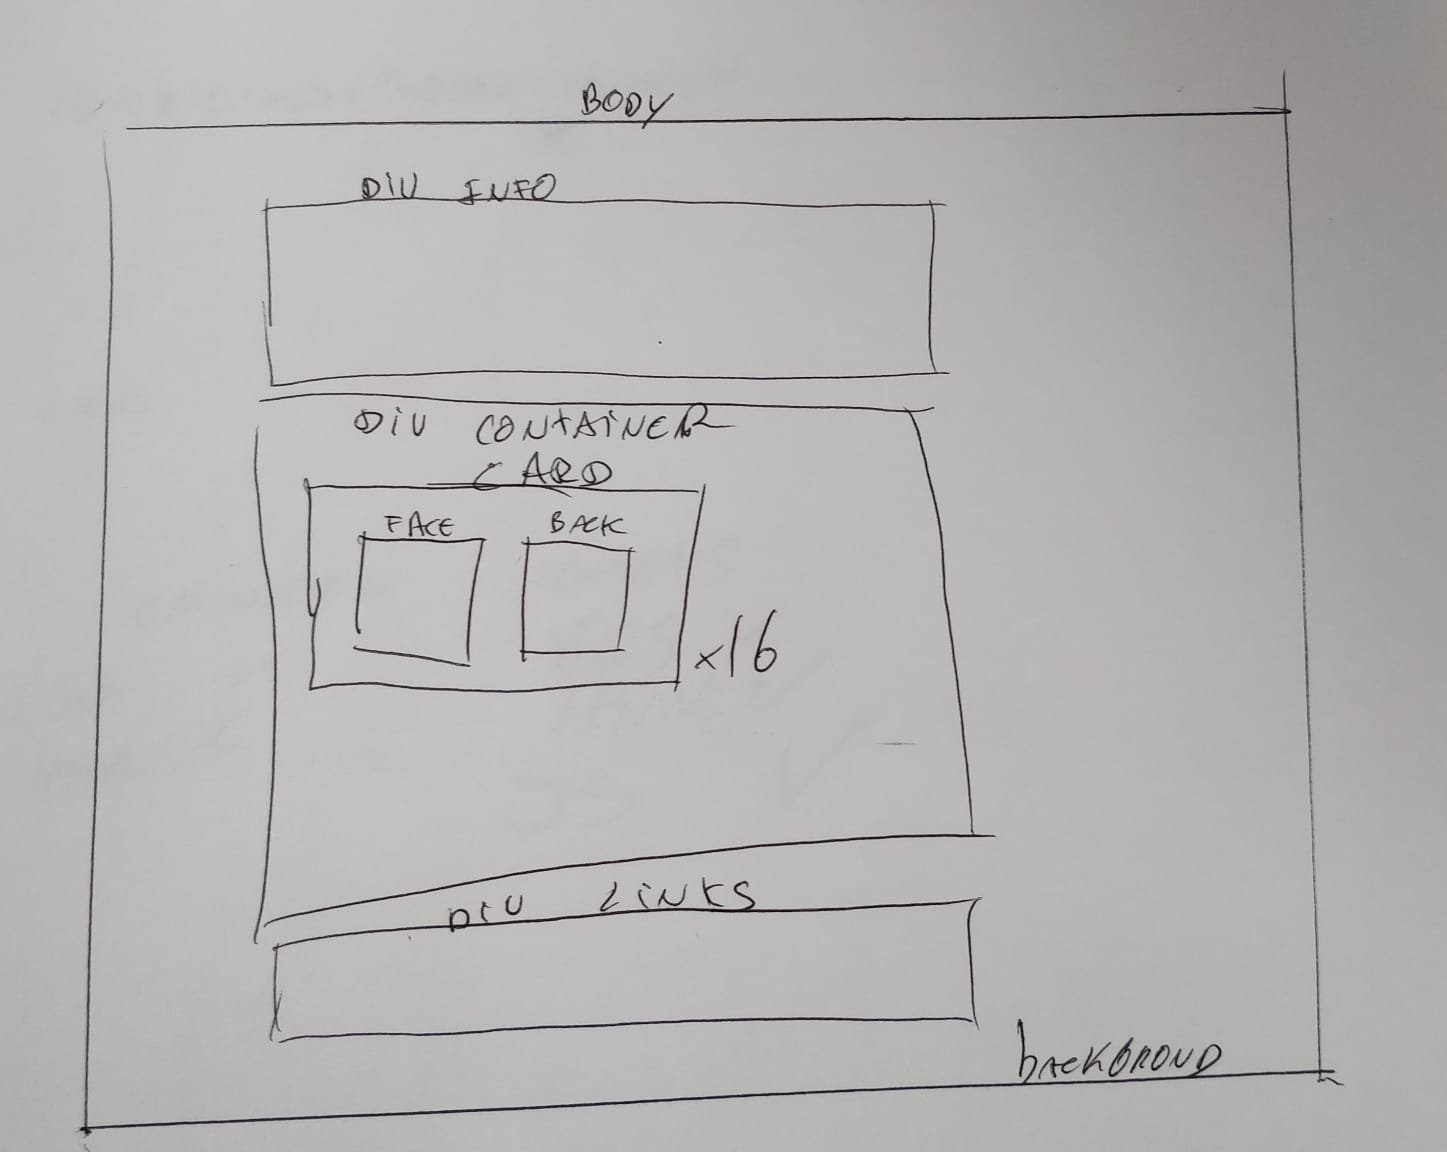 BODY
DiV INFO
DiV CONTAiNER
CARD
FACE BACK
x16
DiV LiNKS
bACKGROUND